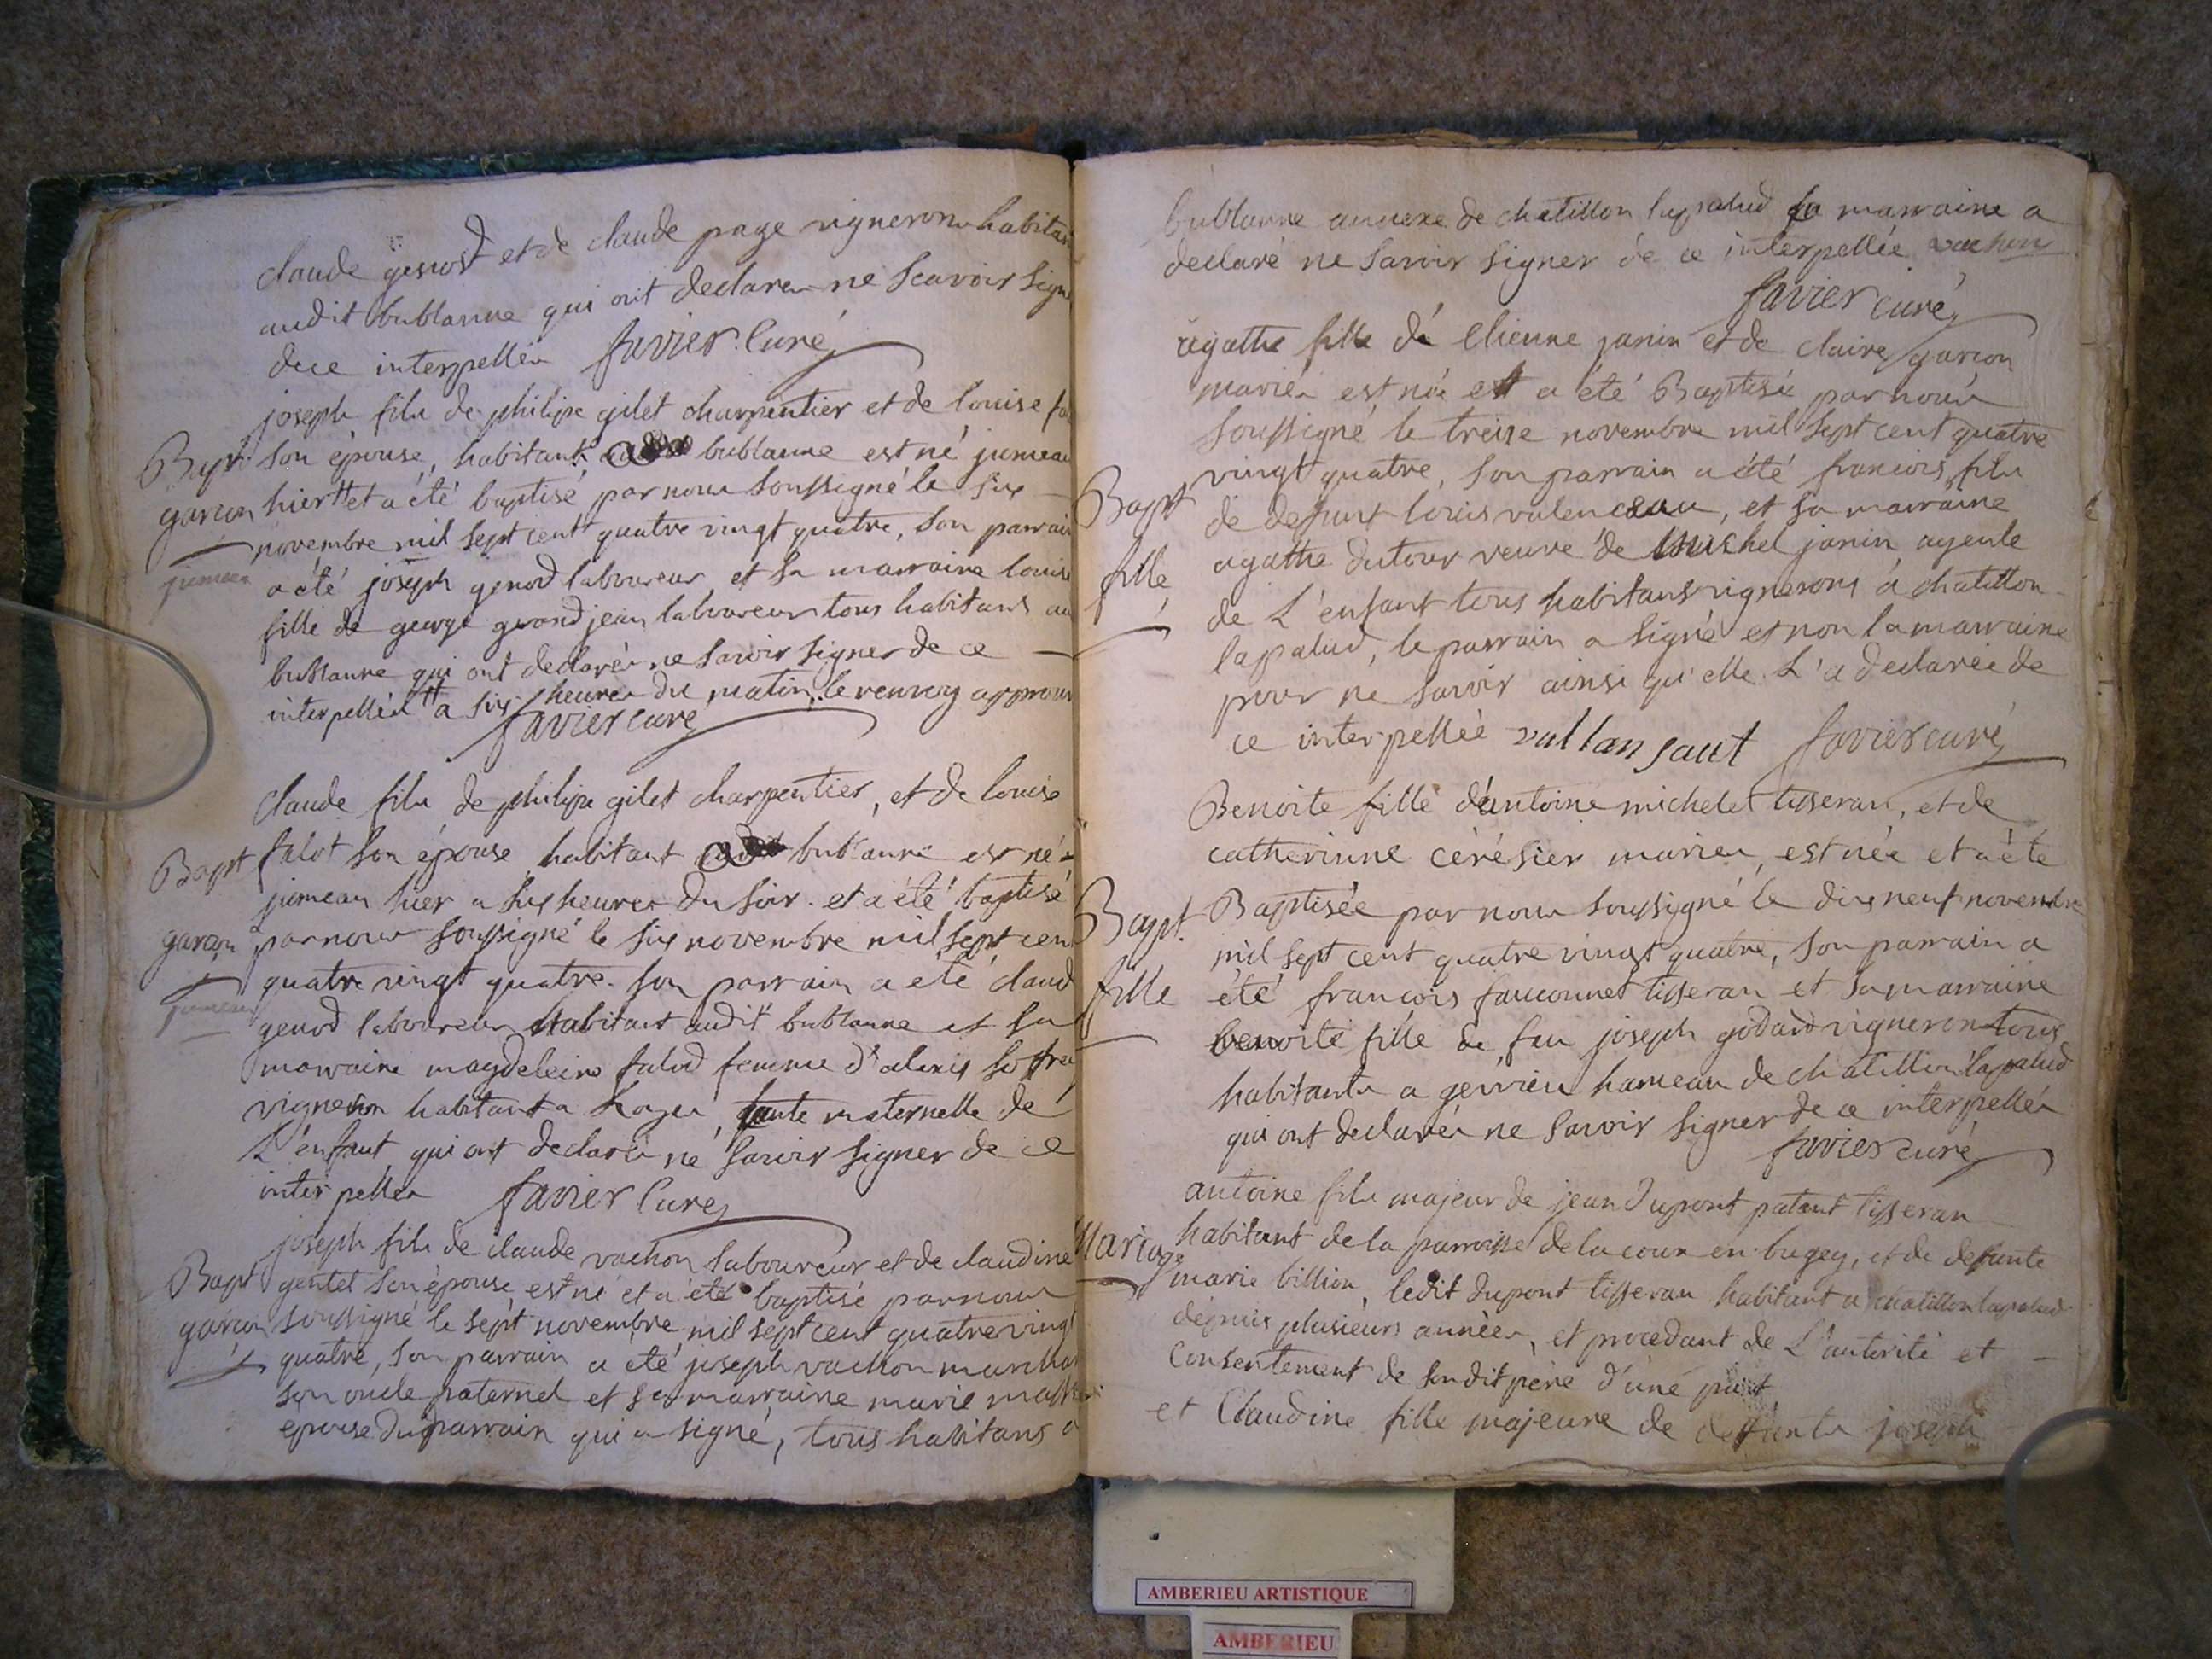 claude genost et de claude page vigneron habitan
audit bublanne qui ont declarer ne scavoir signe
dece interpellés favier Curé
joseph fils de philipe gilet charpentier et de louise fa
Bapt son épouse, habitant bublanne est né jumeau
garçon hier et a été baptisé par nous soussigné le six
novembre mil sept cent quatre vingt quatre, son parrain
jumeau
a été joseph genod laboureur et sa marraine louise
fille de george grandjean laboureur tous habitans au
bublanne qui ont declarés ne savoir signer de ce
interpellés a six heures du matin. le renvoy approuv
favier curé
claude fils de philipe gilet charpentier, et de louise
Bapt falot son épouse habitant bublanne est né
jumeau hier a six heures du soir. et a été baptisé
garçon par nous soussigné le six novembre mil sept cent
quatre vingt quatre. son parrain a été claud
jumeau
genod laboureur habitant audit bublanne et sa
marraine magdeleine falod femme d'alexis
vigneron habitant a, tante maternelle de
L'enfant qui ont declarés ne savoir signer de ce
interpellés favier Curé
joseph fils de claude vachon laboureur et de claudine
Bapt gentet son épouse est né et a été baptisé par nous
garçon soussigné le sept novembre mil sept cent quatre vingt
quatre, son parrain a été joseph vachon marchan
son oncle paternel et sa marraine marie
epouse du parrain qui a signé, tous habitans a
bublanne annexe de chatillon lapalud la marraine a
declaré ne savoir signer de ce interpellée vachon
favier curé
agathe fille de etienne janin et de claire garcon
mariés est née et a été Baptisée par nous
soussigné le treise novembre mil sept cent quatre
vingt quatre, son parrain a été francois fils
Bapt de defunt louis valenceau, et sa marraine
agathe dutour veuve de michel janin ayeule
fille
de L'enfant tous habitans vignerons à chatillon
lapalud, le parrain a signé et non la marraine
pour ne savoir ainsi qu'elle L'a declarée de
ce interpellée vallansaut favier curé
Benoite fille d'antoine michelet tisseran, et de
catherinne cérésier mariés, est née et a été
Bapt. Baptisée par nous soussigné le dix neuf novembre
mil sept cent quatre vingt quatre, son parrain a
fille été francois fauconnet tisseran et sa marraine
benoite fille de feu joseph godard vigneron tous
habitants a gevrieu hameau de chatillon lapalud
qui ont declarés ne savoir signer de ce interpellés
favier curé
antoine fils majeur de jean dupont patant tisseran
Mariage habitant de la parroisse delacoux en bugey, et de defunte
marie billion, ledit dupont tisseran habitant a chatillon lapalud
depuis plusieurs années, et procedant de L'autorité et
consentement de sondit père d'une part
et Claudine fille majeure de deffunts joseph
AMBERIEU ARTISTIQUE
AMBERIEU